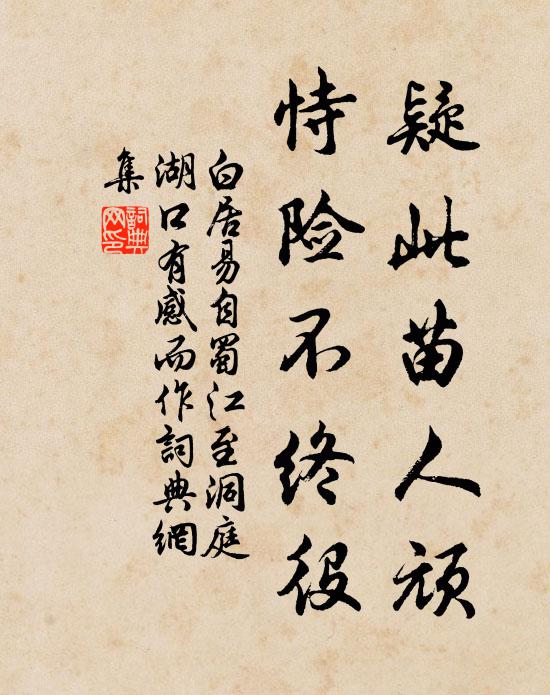 疑此苗人顽
恃险不终役
白居易自蜀江至洞庭
湖口有感而作詞典網
集
詞典
网印